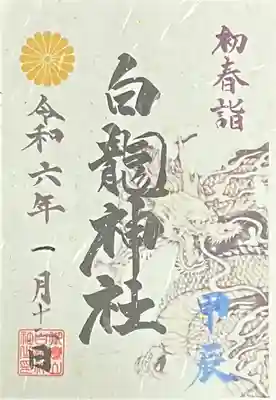 初春詣
甲辰
白龍神社
令和六年一月十
日